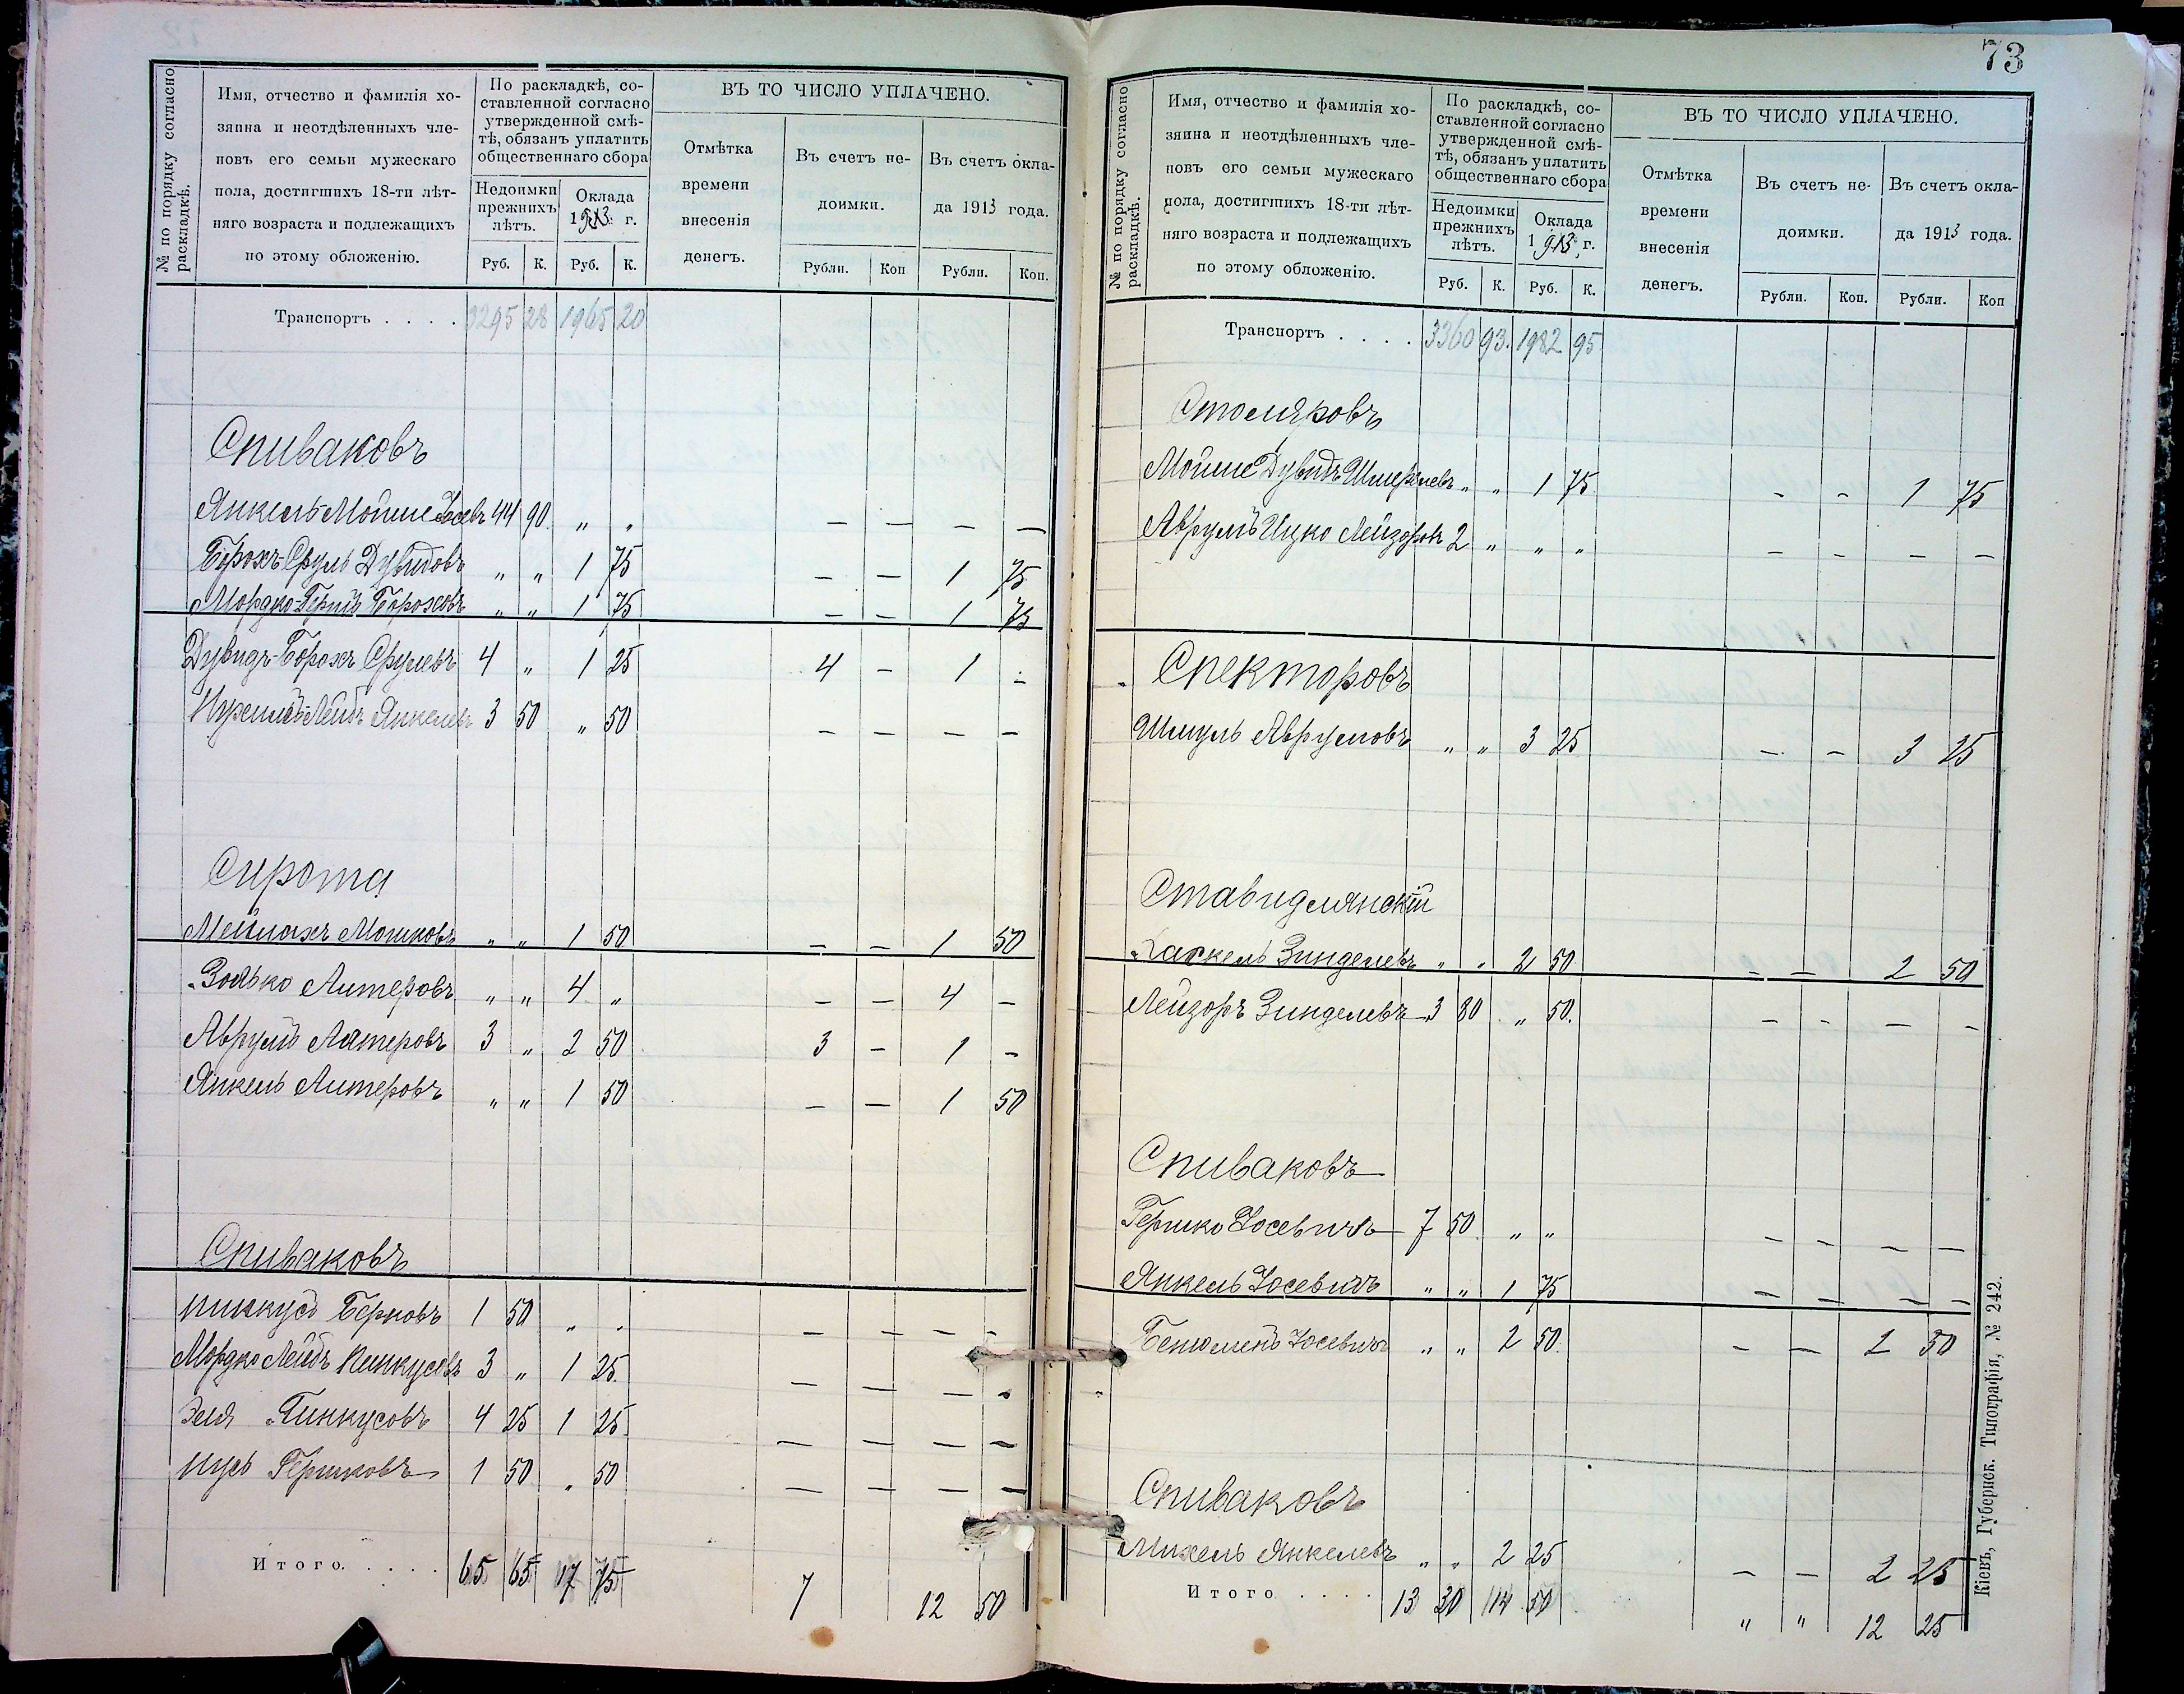 № по порядку согласно раскладкѣ.
Имя, отчество и фамилія хо-
зяина и неотдѣленныхъ чле-
новъ его семьи мужескаго
пола, достигшихъ 18-ти лѣт-
няго возраста и подлежащихъ
по этому обложенію.
По раскладкѣ, со-
ставленной согласно
утвержденной смѣ-
тѣ, обязанъ уплатить
общественнаго сбора
Недоимки прежнихъ лѣтъ.
Оклада 1913 г.
Руб. К. Руб. К.
ВЪ ТО ЧИСЛО УПЛАЧЕНО.
Отмѣтка времени внесенія денегъ.
Въ счетъ не-
доимки.
Рубли. Коп
Въ счетъ окла-
да 1913 года.
Рубли. Коп.
Транспортъ . . . . 3295 28 1965 20
Спиваковъ
Янкель Мойше 44 90 „ „ — — — —
Борохъ-Сруль Дувидовъ „ „ 1 75 — — 1 75
Мордко-Гершъ Бороховъ „ „ 1 75 — — 1 75
Дувидъ-Борохъ Срулевъ 4 „ 1 25 4 — 1 -
Лейбъ Янкелевъ 3 50 „ 50 — — — —
Сирота
Мейлахъ Мошковъ „ „ 1 50 — — 1 50
Золько Алтеровъ „ „ 4 „ — — 4 —
Аврумъ Алтеровъ 3 „ 2 50 3 — 1 —
Янкель Алтеровъ „ „ 1 50 — — 1 50
Спиваковъ
Пинкусъ Берковъ 1 50 „ „ — — — —
Мордко Лейбъ Пинкусовъ 3 „ 1 25 — — — -
Эля Пинкусовъ 4 25 1 25 — — — —
Нусь Гершковъ 1 50 „ 50 — — — —
Итого. . . . . 65 65 17 75 7 12 50
73
№ по порядку согласно раскладкѣ.
Имя, отчество и фамилія хо-
зяина и неотдѣленныхъ чле-
новъ его семьи мужескаго
пола, достигшихъ 18-ти лѣт-
няго возраста и подлежащихъ
по этому обложенію.
По раскладкѣ, со-
ставленной согласно
утвержденной смѣ-
тѣ, обязанъ уплатить
общественнаго сбора
Недоимки прежнихъ лѣтъ.
Оклада 1913 г.
Руб. К. Руб. К.
ВЪ ТО ЧИСЛО УПЛАЧЕНО.
Отмѣтка времени внесенія денегъ.
Въ счетъ не-
доимки.
Рубли. Коп.
Въ счетъ окла-
да 1913 года.
Рубли. Коп
Транспортъ . . . . 3360 93. 1982 95
Столяровъ
Мойше Дувидъ Шмерелевъ „ „ 1 75 - - 1 75
Аврумъ Ицко Лейзоровъ 2 „ „ „ — — — —
Спекторовъ
Шмуль Аврумовъ „ „ 3 25 — — 3 25
Ставидлянскій
Хаскель Зинделевъ „ „ 2 50 — — 2 50
Лейзоръ Зинделевъ 3 80 „ 50. — — — —
Спиваковъ
Гершко Іосевичъ 7 50 „ „ — — — —
Янкель Іосевичъ „ „ 1 75 — — — —
Беньюменъ Іосевичъ „ „ 2 50. — — 2 50
Спиваковъ
Михель Янкелевъ „ „ 2 25 — — 2 25
Итого . . . . 13 30 14 50 „ „ 12 25
Кіевъ, Губернск. Типографія, № 242.